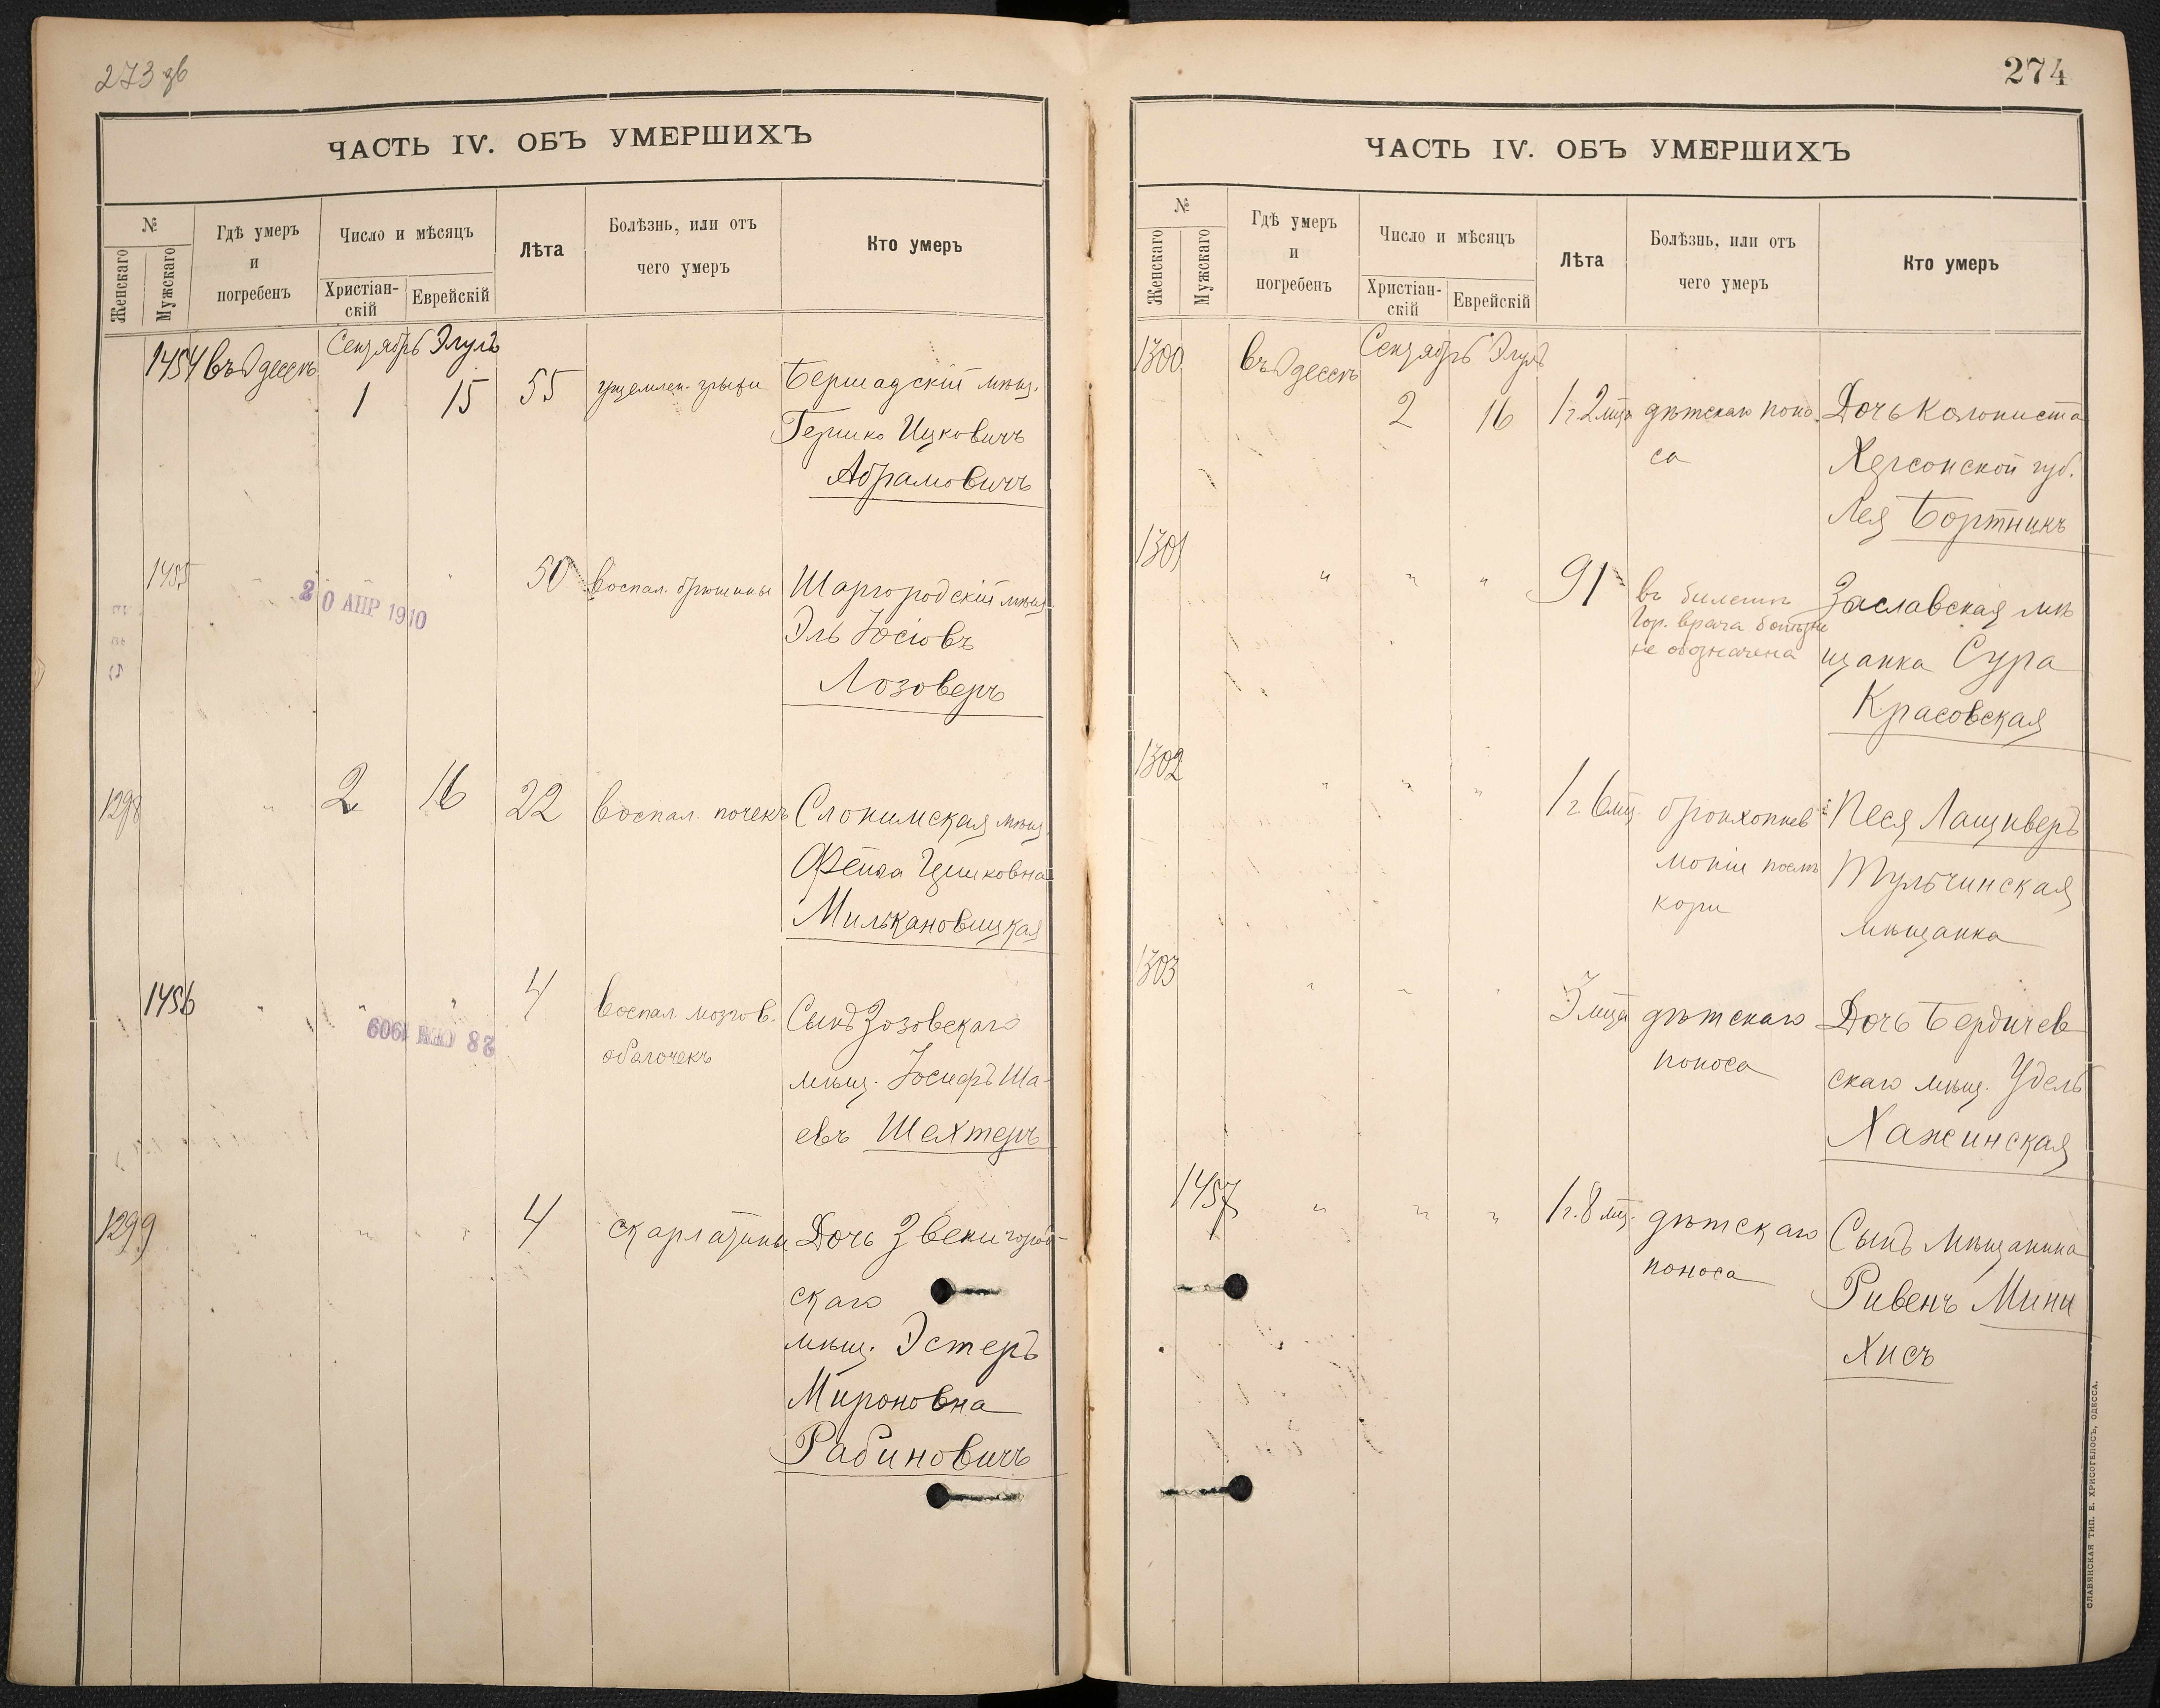 273 зв
ЧАСТЬ IV. ОБЪ УМЕРШИХЪ
№
Женскаго
Мужскаго
Гдѣ умеръ
и
погребенъ
Число и мѣсяцъ
Христіан-
скій
Еврейскій
Лѣта
Болѣзнь, или отъ
чего умеръ
Кто умеръ
1454 въ Одессѣ Сентябрь Элулъ
1 15 55 ущемлен. грыжи Бершадскій мѣщ.
Гершко Ицковичъ
Абрамовичъ
1455 " " 50 воспал. брюшины Шаргородскій мѣщ.
20 АПР 1910
Эль Іосіовъ
Лозоверъ
1298 " 2 16 22 воспал. почекъ Слонимская мѣщ.
Фейга Ицковна
Милькановицкая
1456 " " " 4 воспал. мозгов. Сынъ Зозовскаго
оболочекъ
мѣщ. Іосифъ Ша-
евъ Шехтеръ
1299 " " " 4 скарлатины Дочь Звенигород-
скаго
мѣщ. Эстеръ
Мироновна
Рабиновичъ
274
ЧАСТЬ IV. ОБЪ УМЕРШИХЪ
№
Женскаго
Мужскаго
Гдѣ умеръ
и
погребенъ
Число и мѣсяцъ
Христіан-
скій
Еврейскій
Лѣта
Болѣзнь, или отъ
чего умеръ
Кто умеръ
1300 въ Одессѣ Сентябрь Элулъ
2 16 1 г. 2 мѣц дѣтскаго поно Дочь колониста
са Херсонской губ.
Лея Бортникъ
1301 " " " 91 въ билетѣ Заславская мѣ
Гор. врача болѣзнь
не обозначена щанка Сура
Красовская
1302 " " " 1 г. 6 мц. бронхопнев Песя Лащиверъ
моніи послѣ Тульчинская
кори мѣщанка
1303 " " " 3 мца дѣтскаго Дочь Бердичев
поноса скаго мѣщ. Удель
Хажинская
1457 " " " 1 г. 8 мц. дѣтскаго Сынъ мѣщанина
поноса Рувенъ Мини
хисъ
СЛАВЯНСКАЯ ТИП. Е. ХРИСОГЕЛОСЪ, ОДЕССА.